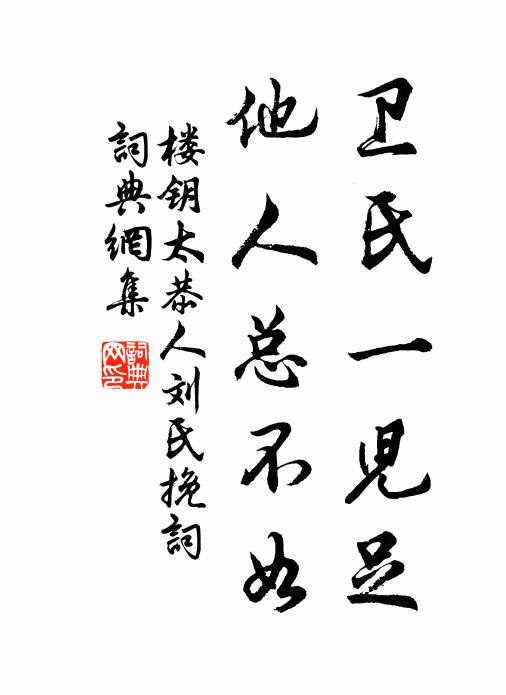 卫氏一児足
他人总不如
楼钥太恭人刘氏挽詞
詞典網集
詞典网印